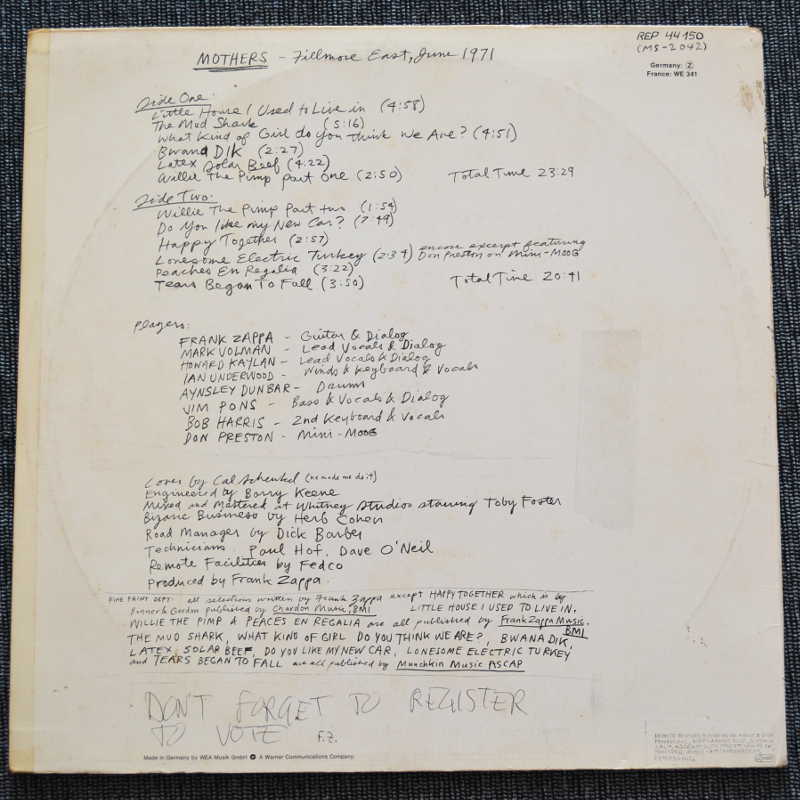 MOTHERS - Fillmore East, June 1971
REP 44150
(MS-2042)
Germany: Z
France: WE 341
Side One:
Little House I Used to Live in (4:58)
The Mud Shark (5:16)
What Kind of Girl do you think we Are? (4:51)
Bwana DIK (2:27)
Latex Solar Beef (4:22)
Willie The Pimp part one (2:50) Total Time 23:29
Side Two:
Willie The Pimp Part two (1:54)
Do You like my New Car? (7:49)
Happy Together (2:57)
Lonesome Electric Turkey (2:34) encore excerpt featuring Don Preston on Mini-MOOG
Peaches En Regalia (3:22)
Tears Began To Fall (3:50) Total Time 20:41
Players:
FRANK ZAPPA - Guitar & Dialog
MARK VOLMAN - Lead Vocals & Dialog
HOWARD KAYLAN - Lead Vocals & Dialog
IAN UNDERWOOD - Winds & Keyboard & Vocals
AYNSLEY DUNBAR - Drums
JIM PONS - Bass & Vocals & Dialog
BOB HARRIS - 2nd Keyboard & Vocals
DON PRESTON - Mini-MOOG
Cover by Cal Schenkel (he made me do it)
Engineered by Barry Keene
Mixed and Mastered at Whitney Studios starring Toby Foster
Bizarre Business by Herb Cohen
Road Manager by Dick Barber
Technicians: Paul Hof, Dave O'Neil
Remote Facilities by Fedco
Produced by Frank Zappa
FINE PRINT DEPT: all selections written by Frank Zappa except HAPPY TOGETHER which is by
Bonner & Gordon published by Chardon Music, BMI LITTLE HOUSE I USED TO LIVE IN,
WILLIE THE PIMP & PEACES EN REGALIA are all published by Frank Zappa Music, BMI
THE MUD SHARK, WHAT KIND OF GIRL DO YOU THINK WE ARE?, BWANA DIK,
LATEX SOLAR BEEF, DO YOU LIKE MY NEW CAR, LONESOME ELECTRIC TURKEY
and TEARS BEGAN TO FALL are all published by Munchkin Music ASCAP
DON'T FORGET TO REGISTER
TO VOTE F.Z.
Made in Germany by WEA Musik GmbH A Warner Communications Company